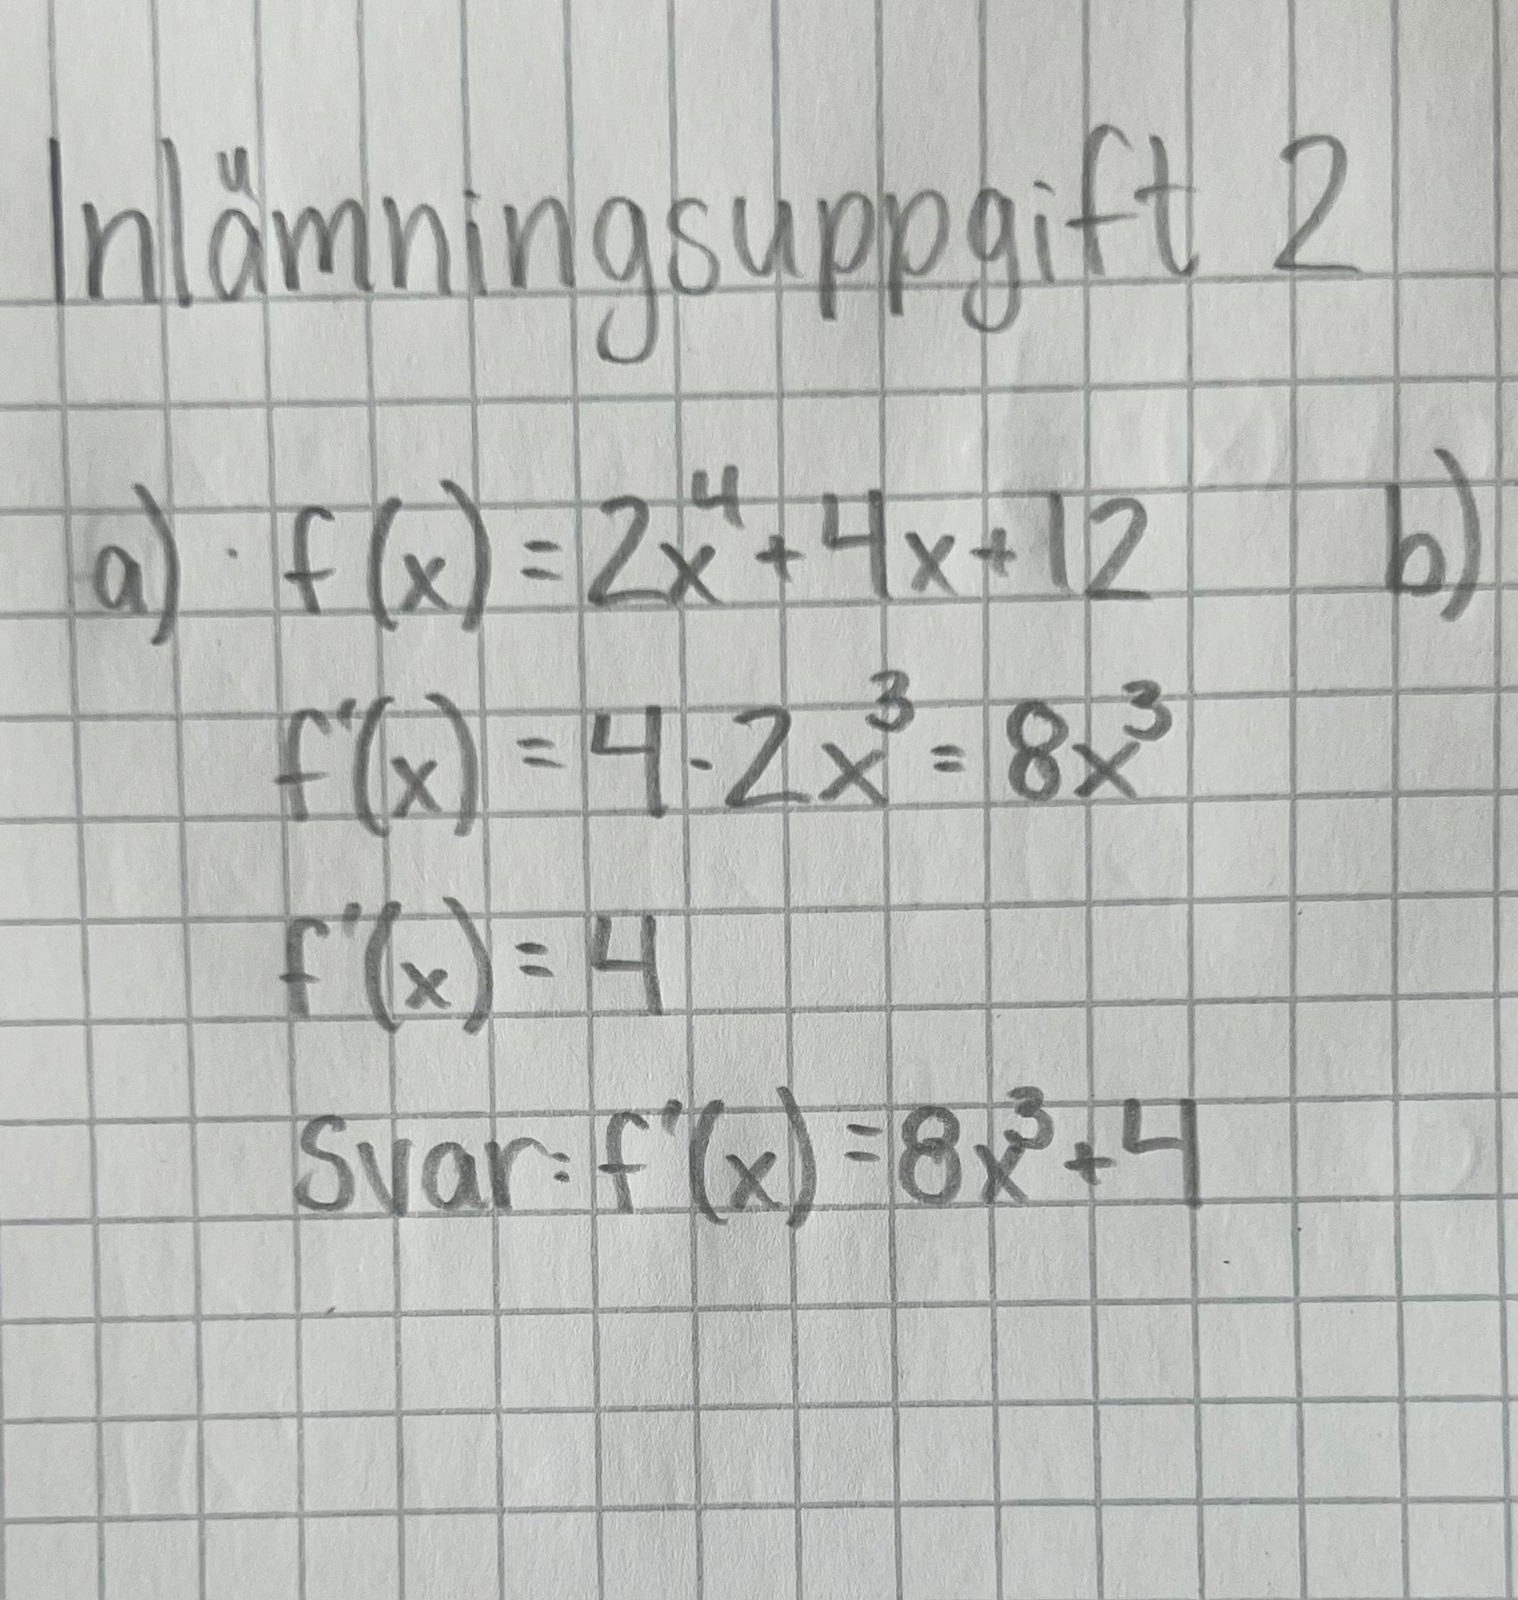 Inlämningsuppgift 2
a) · f(x) = 2x⁴ + 4x + 12 b)
f'(x) = 4 · 2x³ = 8x³
f'(x) = 4
Svar: f'(x) = 8x³ + 4